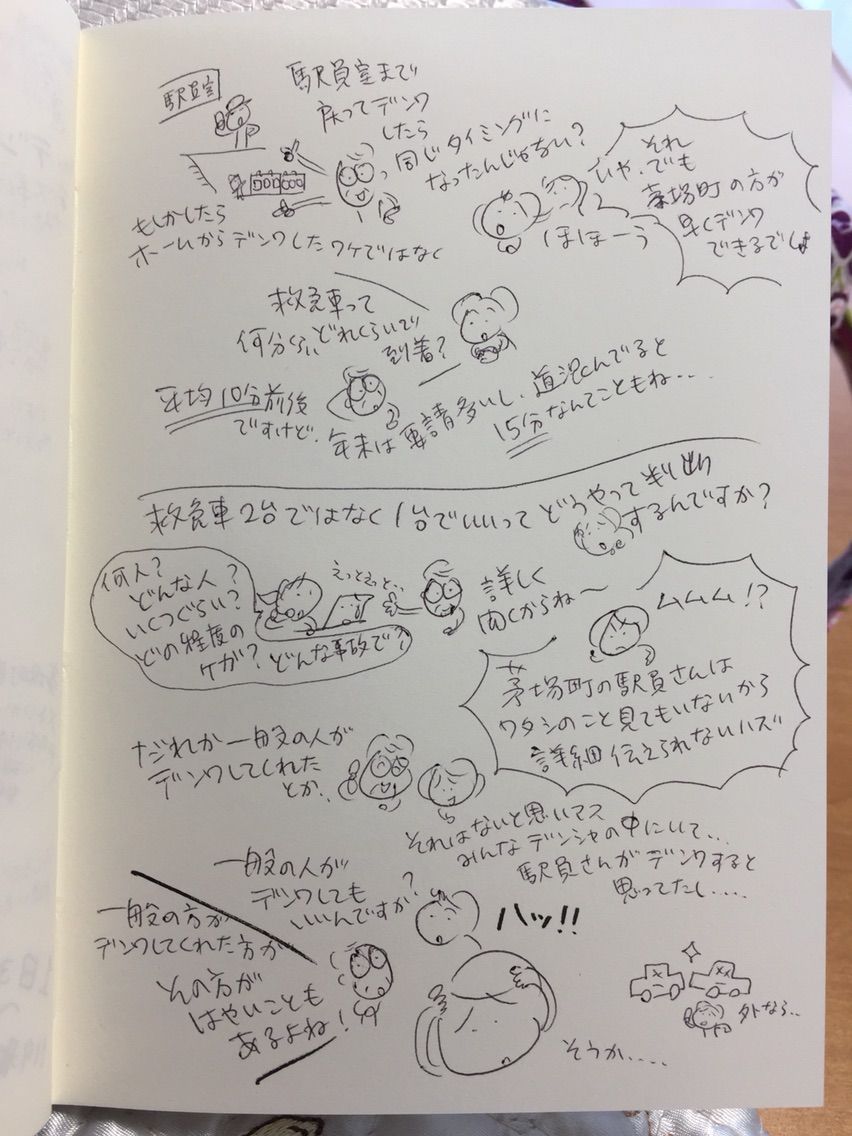 駅員室
駅員室まで
戻ってデンワ
したら
同じタイミングに
なったんじゃない?
それ
いや、でも
茅場町の方が
早くデンワ
できるでしょ
ほほーう
もしかしたら
ホームからデンワしたワケではなく
救急車って
何分くらい、どれくらいで
到着?
平均10分前後
ですけど、年末は要請多いし、道混んでると
15分なんてこともね...
救急車2台ではなく1台でいいってどうやって判断
するんですか?
何人?
どんな人?
いくつぐらい?
どの程度の
ケガ?どんな事故で?
えっとえっと、、
詳しく
聞くからね〜
ムムム!?
茅場町の駅員さんは
ワタシのこと見てもいないから
詳細伝えられないハズ
だれか一般の人が
デンワしてくれた
とか、
それはないと思いマス
みんなデンシャの中にいて、、
駅員さんがデンワすると
思ってたし....
一般の人が
デンワしても
いいんですか?
ハッ!!
一般の方が
デンワしてくれた方が
その方が
はやいことも
あるよね!
そうか....
外なら..